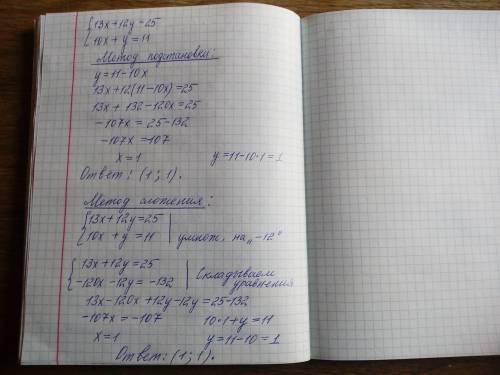 {13x+12y=25
{10x+y=11
Метод подстановки:
y=11-10x
13x+12(11-10x)=25
13x+132-120x=25
-107x=25-132
-107x=-107
x=1 y=11-10·1=1
Ответ: (1;1).
Метод сложения:
{13x+12y=25
{10x+y=11 | умнож. на „-12"
{13x+12y=25
{-120x-12y=-132 | Складываем уравнения
13x-120x+12y-12y=25-132
-107x=-107 10·1+y=11
x=1 y=11-10=1
Ответ: (1;1).